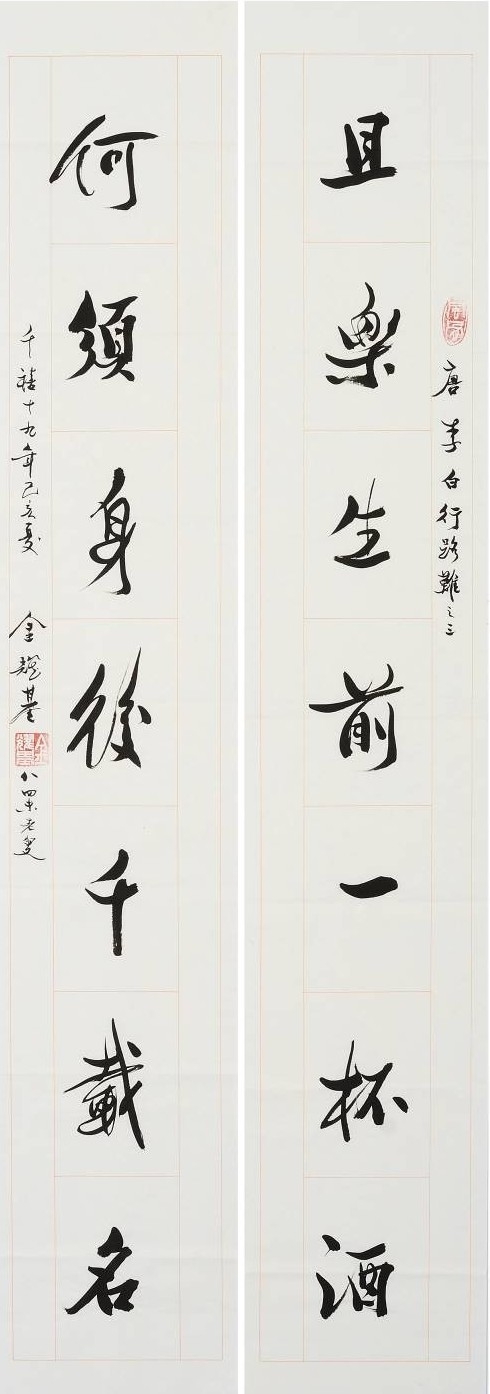 且樂生前一杯酒
唐李白行路難之三
何須身後千載名
千禧十九年己亥夏
金耀基
八四叟